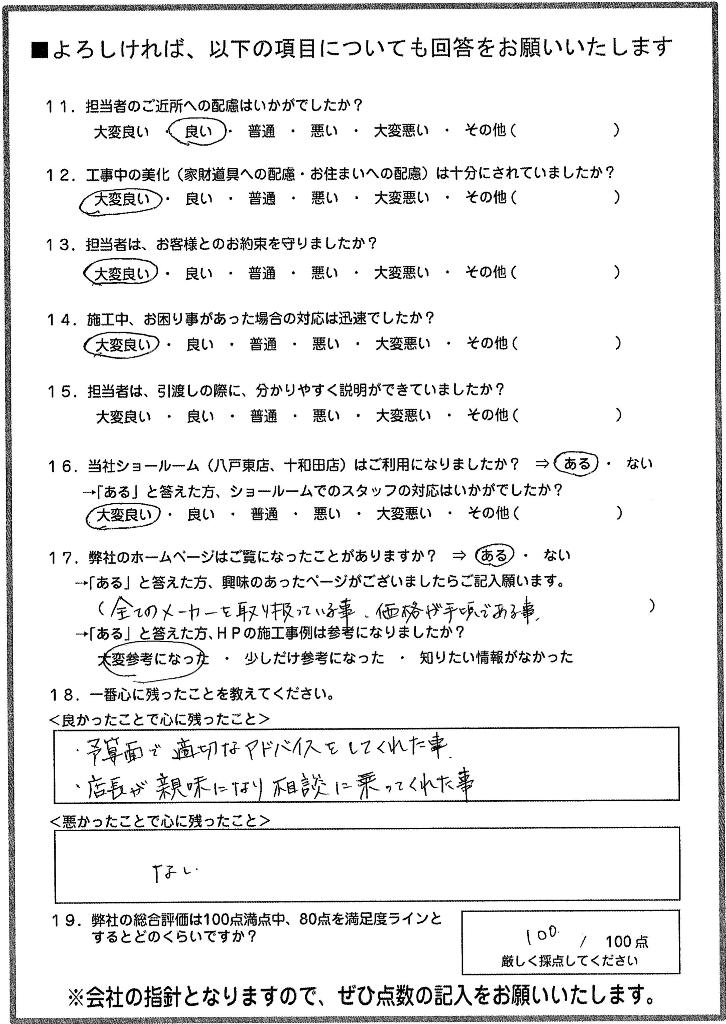 ■よろしければ、以下の項目についても回答をお願いいたします
11．担当者のご近所への配慮はいかがでしたか？
大変良い ・ 良い ・ 普通 ・ 悪い ・ 大変悪い ・ その他（　　　　　　）
12．工事中の美化（家財道具への配慮・お住まいへの配慮）は十分にされていましたか？
大変良い ・ 良い ・ 普通 ・ 悪い ・ 大変悪い ・ その他（　　　　　　）
13．担当者は、お客様とのお約束を守りましたか？
大変良い ・ 良い ・ 普通 ・ 悪い ・ 大変悪い ・ その他（　　　　　　）
14．施工中、お困り事があった場合の対応は迅速でしたか？
大変良い ・ 良い ・ 普通 ・ 悪い ・ 大変悪い ・ その他（　　　　　　）
15．担当者は、引渡しの際に、分かりやすく説明ができていましたか？
大変良い ・ 良い ・ 普通 ・ 悪い ・ 大変悪い ・ その他（　　　　　　）
16．当社ショールーム（八戸東店、十和田店）はご利用になりましたか？　⇒ ある ・ ない
→「ある」と答えた方、ショールームでのスタッフの対応はいかがでしたか？
大変良い ・ 良い ・ 普通 ・ 悪い ・ 大変悪い ・ その他（　　　　　　）
17．弊社のホームページはご覧になったことがありますか？　⇒ ある ・ ない
→「ある」と答えた方、興味のあったページがございましたらご記入願います。
（全てのメーカーを取り扱っている事、価格が手頃である事。）
→「ある」と答えた方、HPの施工事例は参考になりましたか？
大変参考になった ・ 少しだけ参考になった ・ 知りたい情報がなかった
18．一番心に残ったことを教えてください。
<良かったことで心に残ったこと>
・予算面で適切なアドバイスをしてくれた事
・店長が親味になり相談に乗ってくれた事
<悪かったことで心に残ったこと>
ない
19．弊社の総合評価は100点満点中、80点を満足度ラインと
するとどのくらいですか？
100 / 100点
厳しく採点してください
※会社の指針となりますので、ぜひ点数の記入をお願いいたします。